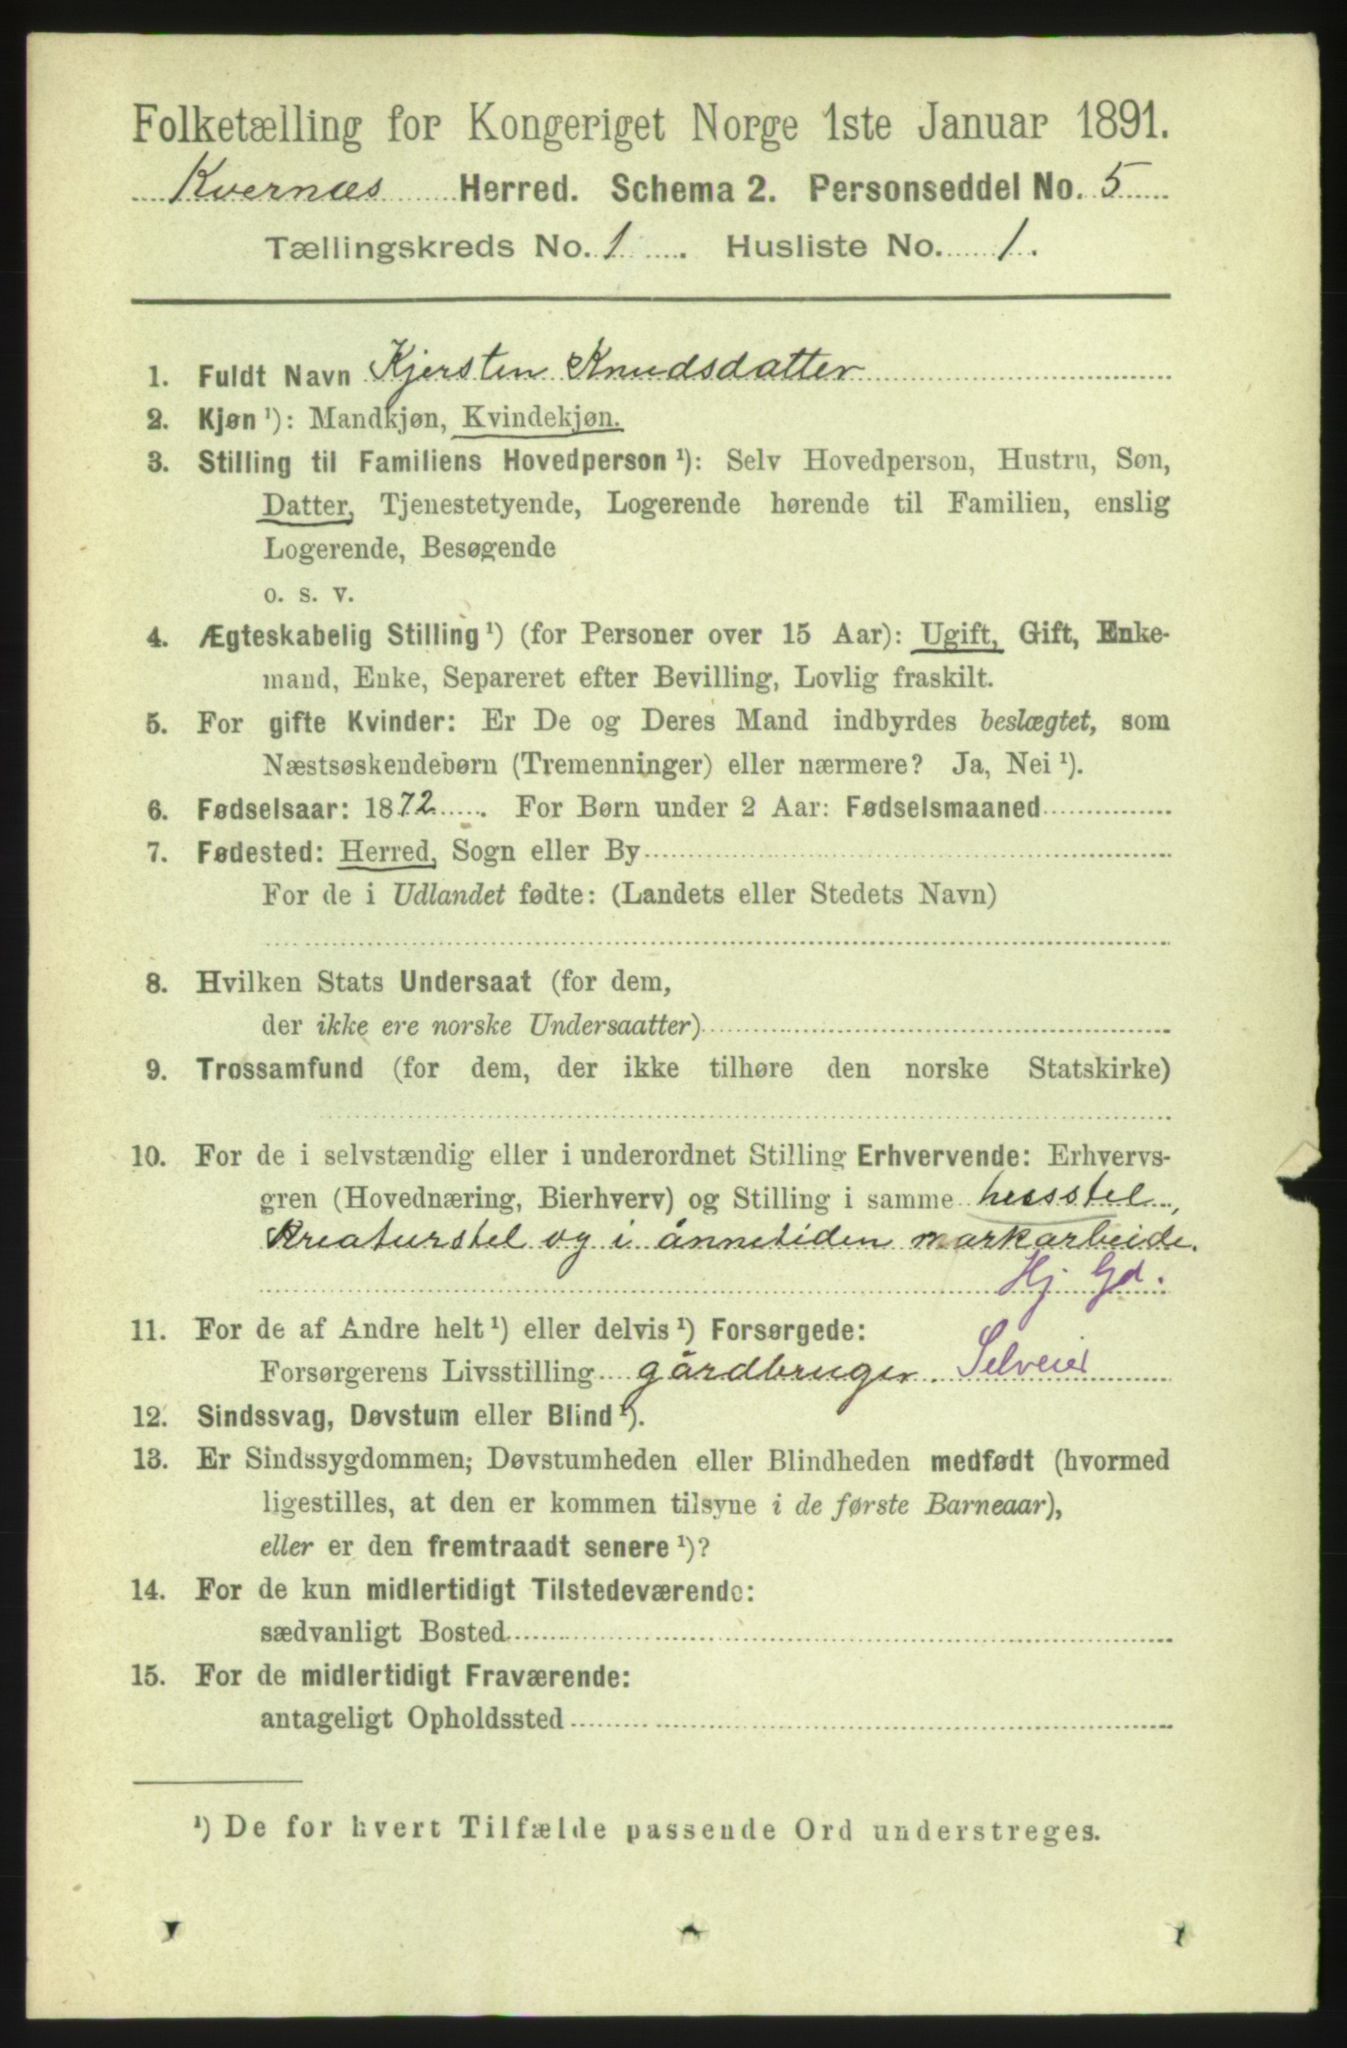 Folketælling for Kongeriget Norge 1ste Januar 1891.
Kvernæs Herred. Schema 2. Personseddel No. 5
Tællingskreds No. 1. Husliste No. 1.
1. Fuldt Navn Kjersten Knudsdatter
2. Kjøn ¹): Mandkjøn, Kvindekjøn.
3. Stilling til Familiens Hovedperson ¹): Selv Hovedperson, Hustru, Søn,
Datter, Tjenestetyende, Logerende hørende til Familien, enslig
Logerende, Besøgende
o. s. v.
4. Ægteskabelig Stilling ¹) (for Personer over 15 Aar): Ugift, Gift, Enke-
mand, Enke, Separeret efter Bevilling, Lovlig fraskilt.
5. For gifte Kvinder: Er De og Deres Mand indbyrdes beslægtet, som
Næstsøskendebørn (Tremenninger) eller nærmere? Ja, Nei ¹).
6. Fødselsaar: 1872. For Børn under 2 Aar: Fødselsmaaned
7. Fødested: Herred, Sogn eller By
For de i Udlandet fødte: (Landets eller Stedets Navn)
8. Hvilken Stats Undersaat (for dem,
der ikke ere norske Undersaatter)
9. Trossamfund (for dem, der ikke tilhøre den norske Statskirke)
10. For de i selvstændig eller i underordnet Stilling Erhvervende: Erhvervs-
gren (Hovednæring, Bierhverv) og Stilling i samme husstel,
Kreaturstel og i ånnetiden markarbeide.
Hj. Gd.
11. For de af Andre helt ¹) eller delvis ¹) Forsørgede:
Forsørgerens Livsstilling gårdbruger. Selveier
12. Sindssvag, Døvstum eller Blind ¹).
13. Er Sindssygdommen, Døvstumheden eller Blindheden medfødt (hvormed
ligestilles, at den er kommen tilsyne i de første Barneaar),
eller er den fremtraadt senere ¹)?
14. For de kun midlertidigt Tilstedeværende:
sædvanligt Bosted
15. For de midlertidigt Fraværende:
antageligt Opholdssted
¹) De for hvert Tilfælde passende Ord understreges.